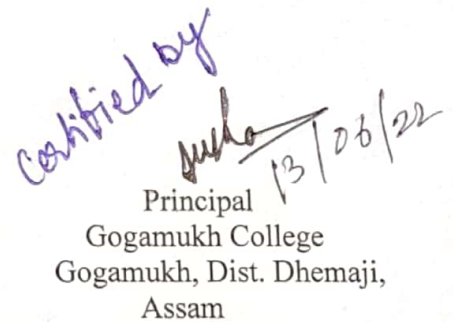 Certified by
13/06/22
Principal
Gogamukh College
Gogamukh, Dist. Dhemaji,
Assam